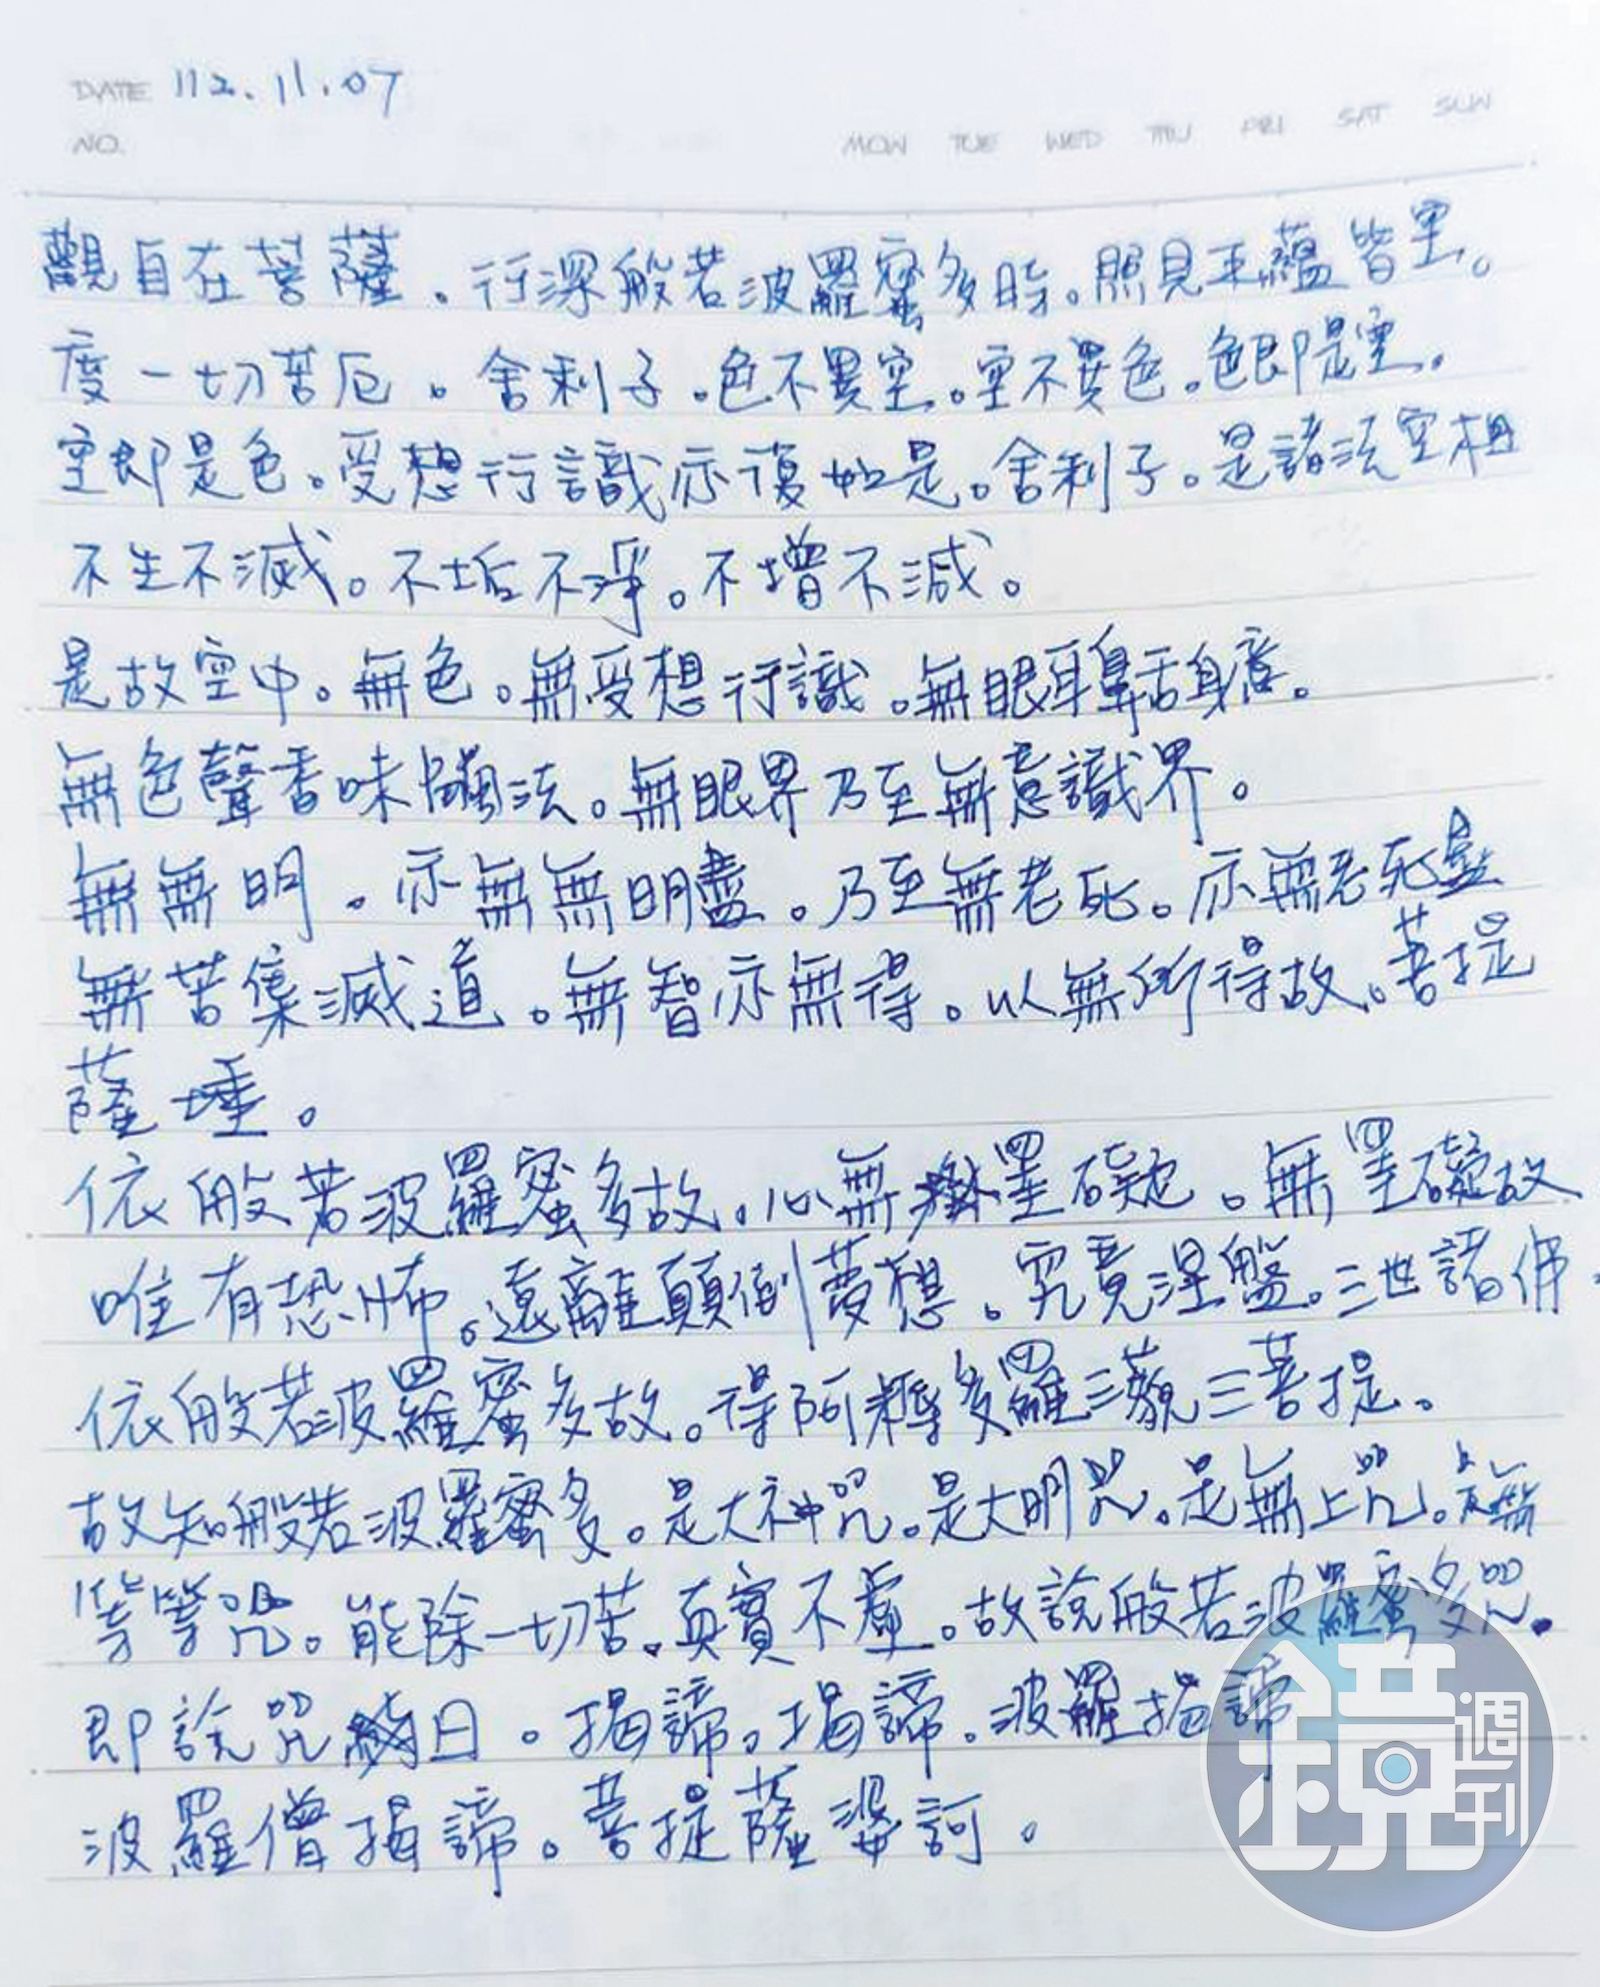 DATE 112.11.07
NO.
MON TUE WED THU FRI SAT SUN
觀自在菩薩。行深般若波羅蜜多時。照見五蘊皆空。
度一切苦厄。舍利子。色不異空。空不異色。色即是空。
空即是色。受想行識亦復如是。舍利子。是諸法空相
不生不滅。不垢不淨。不增不減。
是故空中。無色。無受想行識。無眼耳鼻舌身意。
無色聲香味觸法。無眼界乃至無意識界。
無無明。亦無無明盡。乃至無老死。亦無老死盡
無苦集滅道。無智亦無得。以無所得故。菩提
薩埵。
依般若波羅蜜多故。心無罣礙。無罣礙故
唯有恐怖。遠離顛倒夢想。究竟涅盤。三世諸佛。
依般若波羅蜜多故。得阿耨多羅三藐三菩提。
故知般若波羅蜜多。是大神咒。是大明咒。是無上咒。是無
等等咒。能除一切苦。真實不虛。故說般若波羅蜜多咒。
即說咒曰。揭諦。揭諦。波羅揭諦
波羅僧揭諦。菩提薩婆訶。
鏡週刊